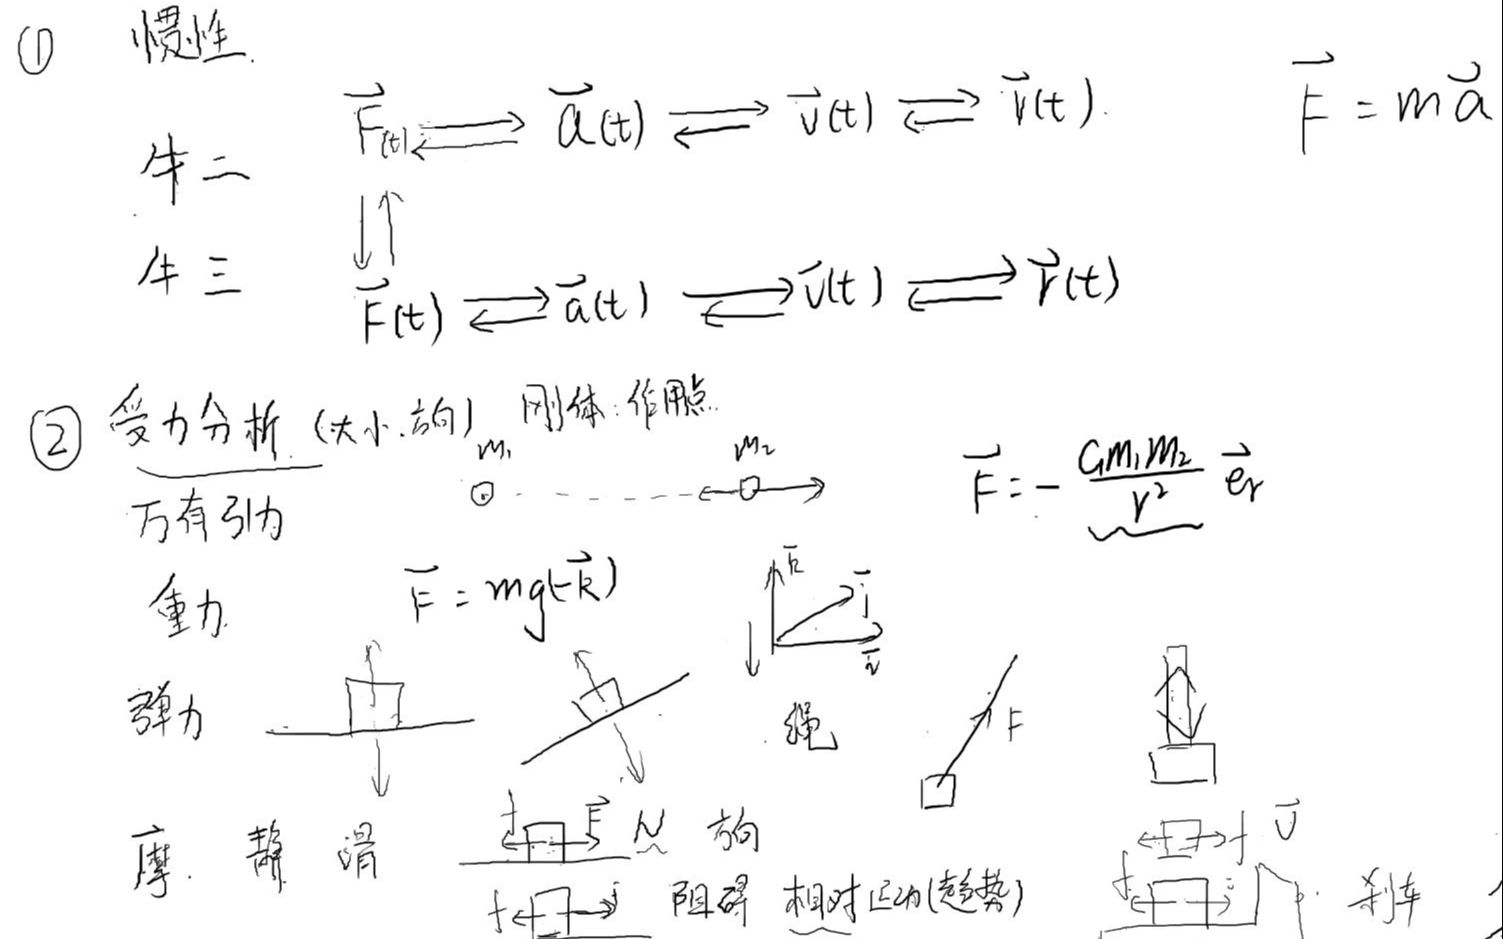 ① 惯性.
F(t) ⇌ a(t) ⇌ v(t) ⇌ r(t). F = ma
牛二
牛三
F(t) ⇌ a(t) ⇌ v(t) ⇌ r(t)
② 受力分析 (大小.方向) 刚体:作用点.
m₁ m₂
万有引力 F = - Gm₁m₂/r² eᵣ
重力 F = mg(-k) k j i
弹力 绳 F
摩. 静 滑 f F N 方向 f v
f 阻碍 相对运动(趋势) f 刹车